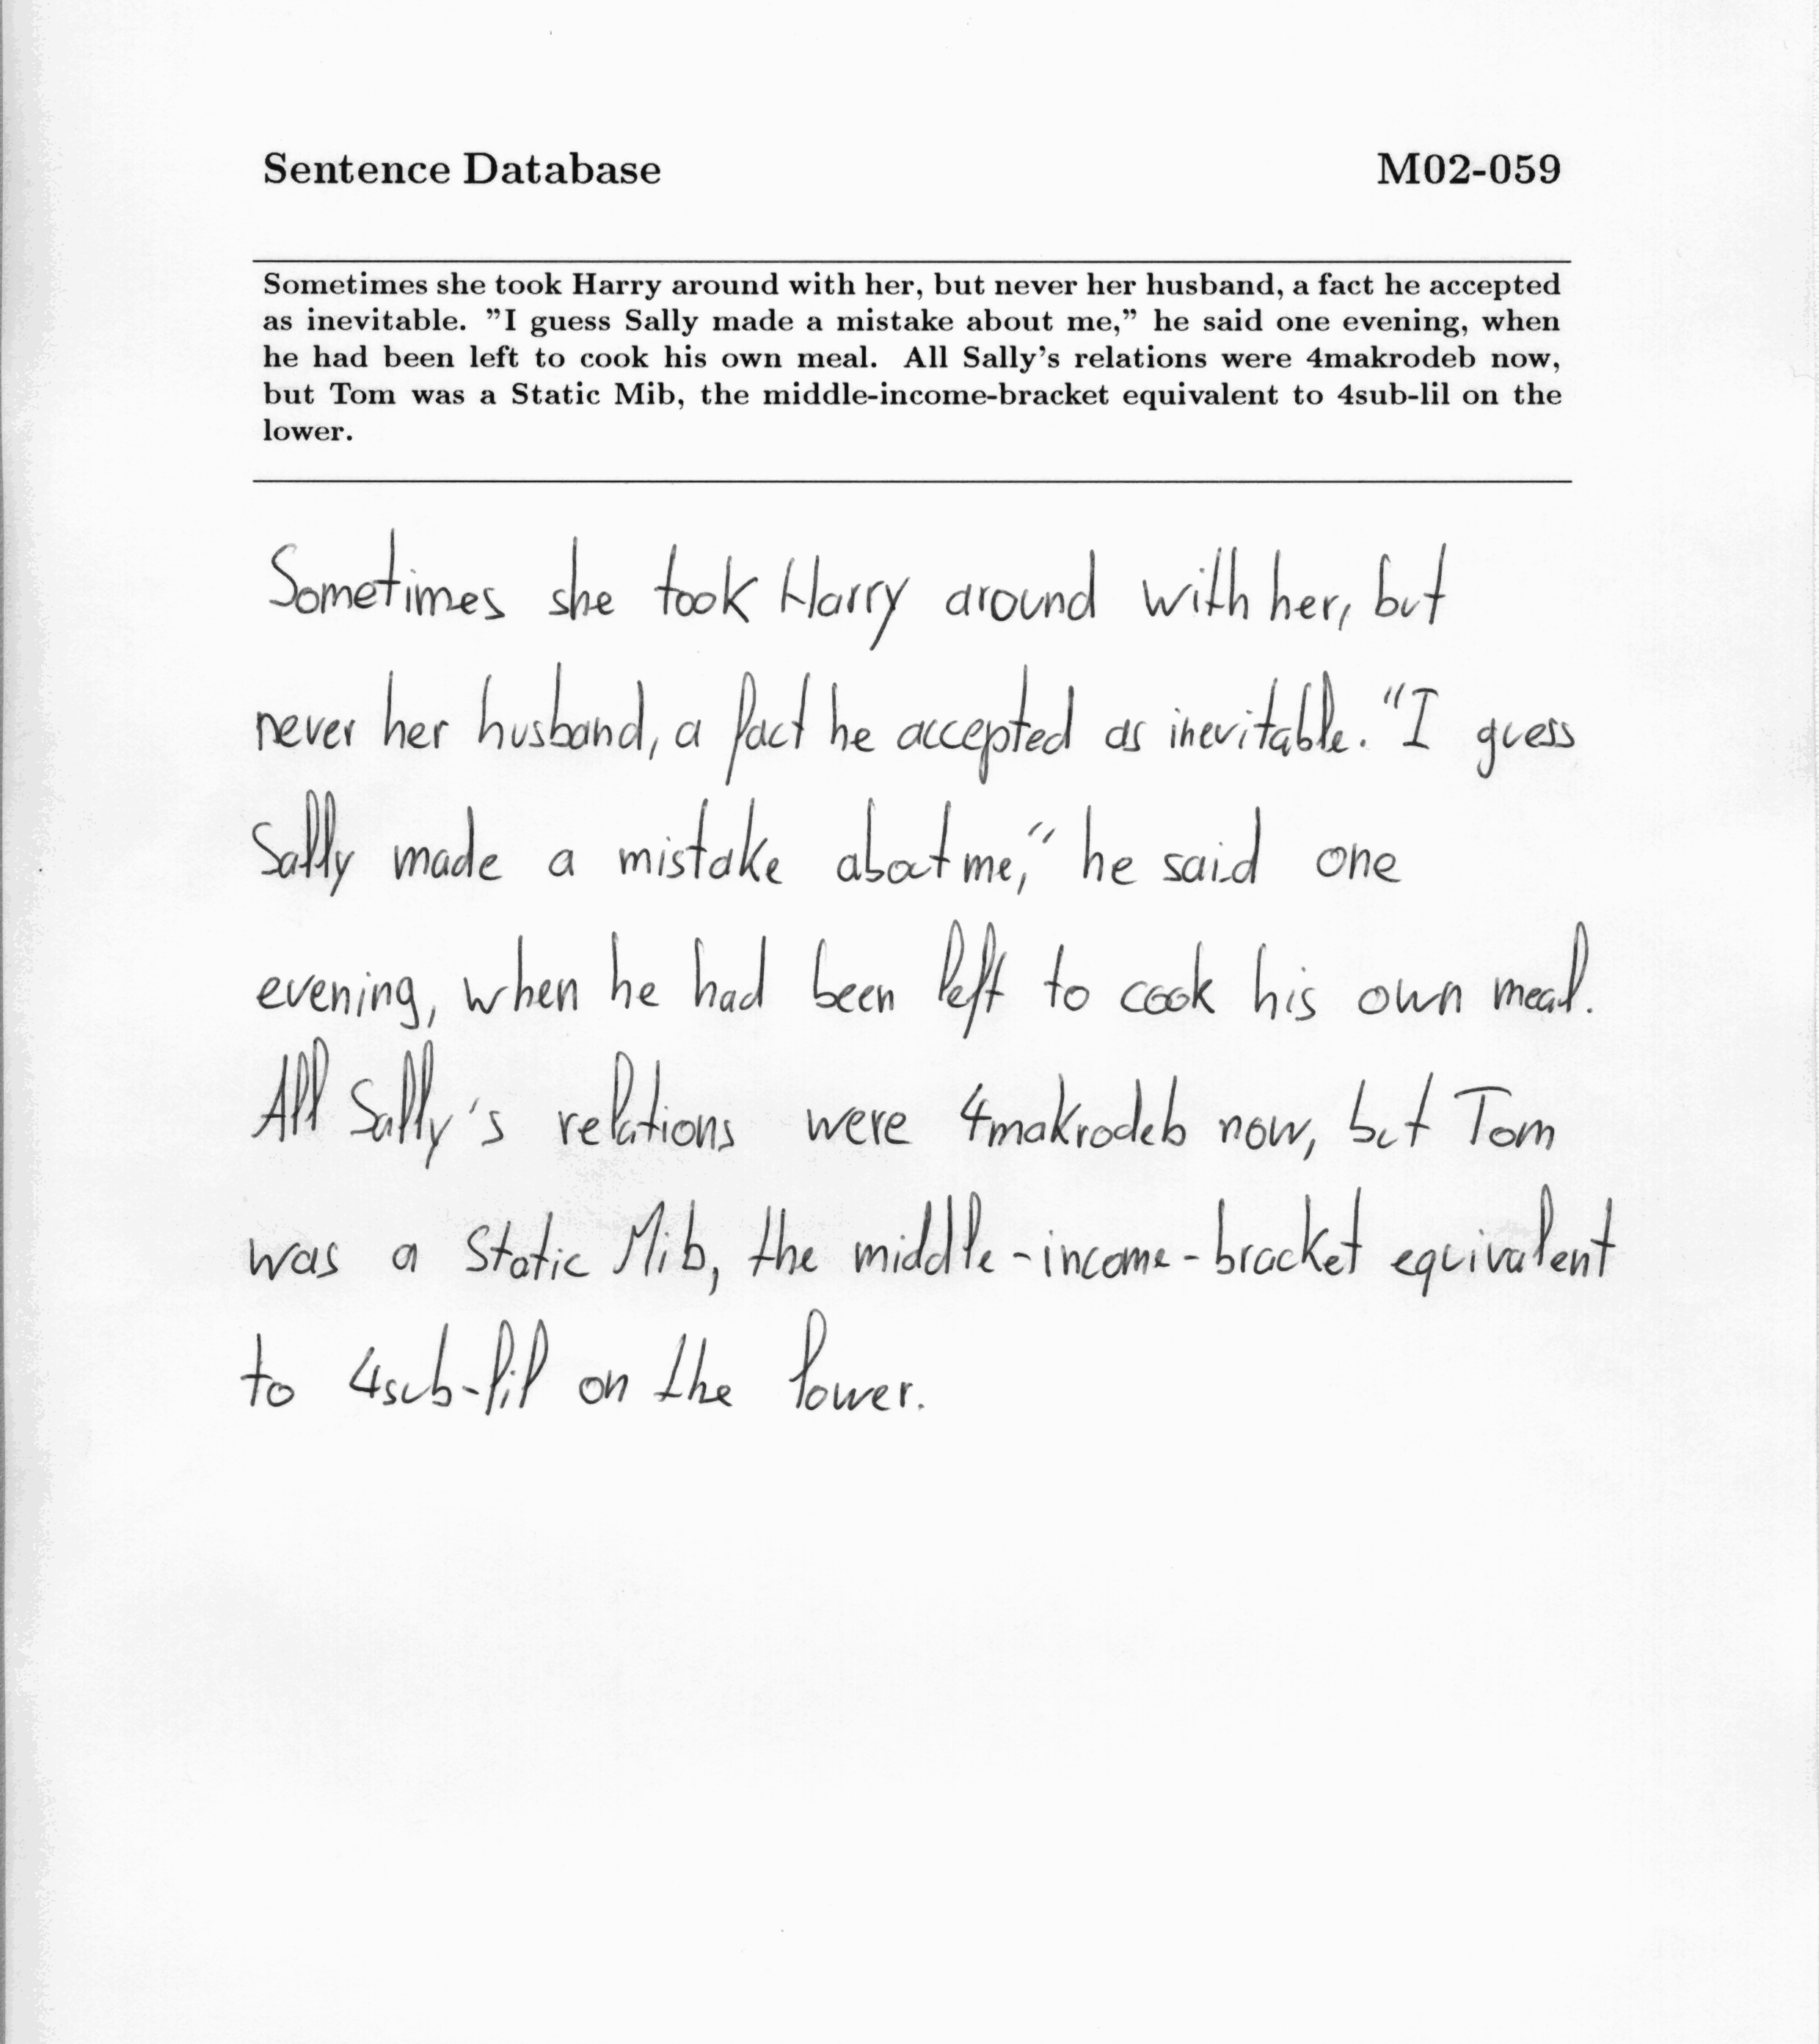 Sentence Database M02-059
Sometimes she took Harry around with her, but never her husband, a fact he accepted
as inevitable. ”I guess Sally made a mistake about me,” he said one evening, when
he had been left to cook his own meal. All Sally’s relations were 4makrodeb now,
but Tom was a Static Mib, the middle-income-bracket equivalent to 4sub-lil on the
lower.
Sometimes she took Harry around with her, but
never her husband, a fact he accepted as inevitable. “I guess
Sally made a mistake about me,“ he said one
evening, when he had been left to cook his own meal.
All Sally's relations were 4makrodeb now, but Tom
was a Static Mib, the middle-income-bracket equivalent
to 4sub-lil on the lower.